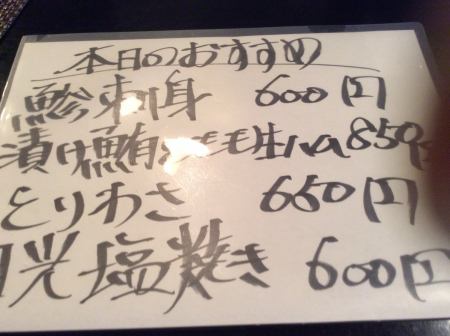 本日のおすすめ
鯵刺身 600円
漬け鮪 生ハム 850円
とりわさ 650円
塩焼き 600円